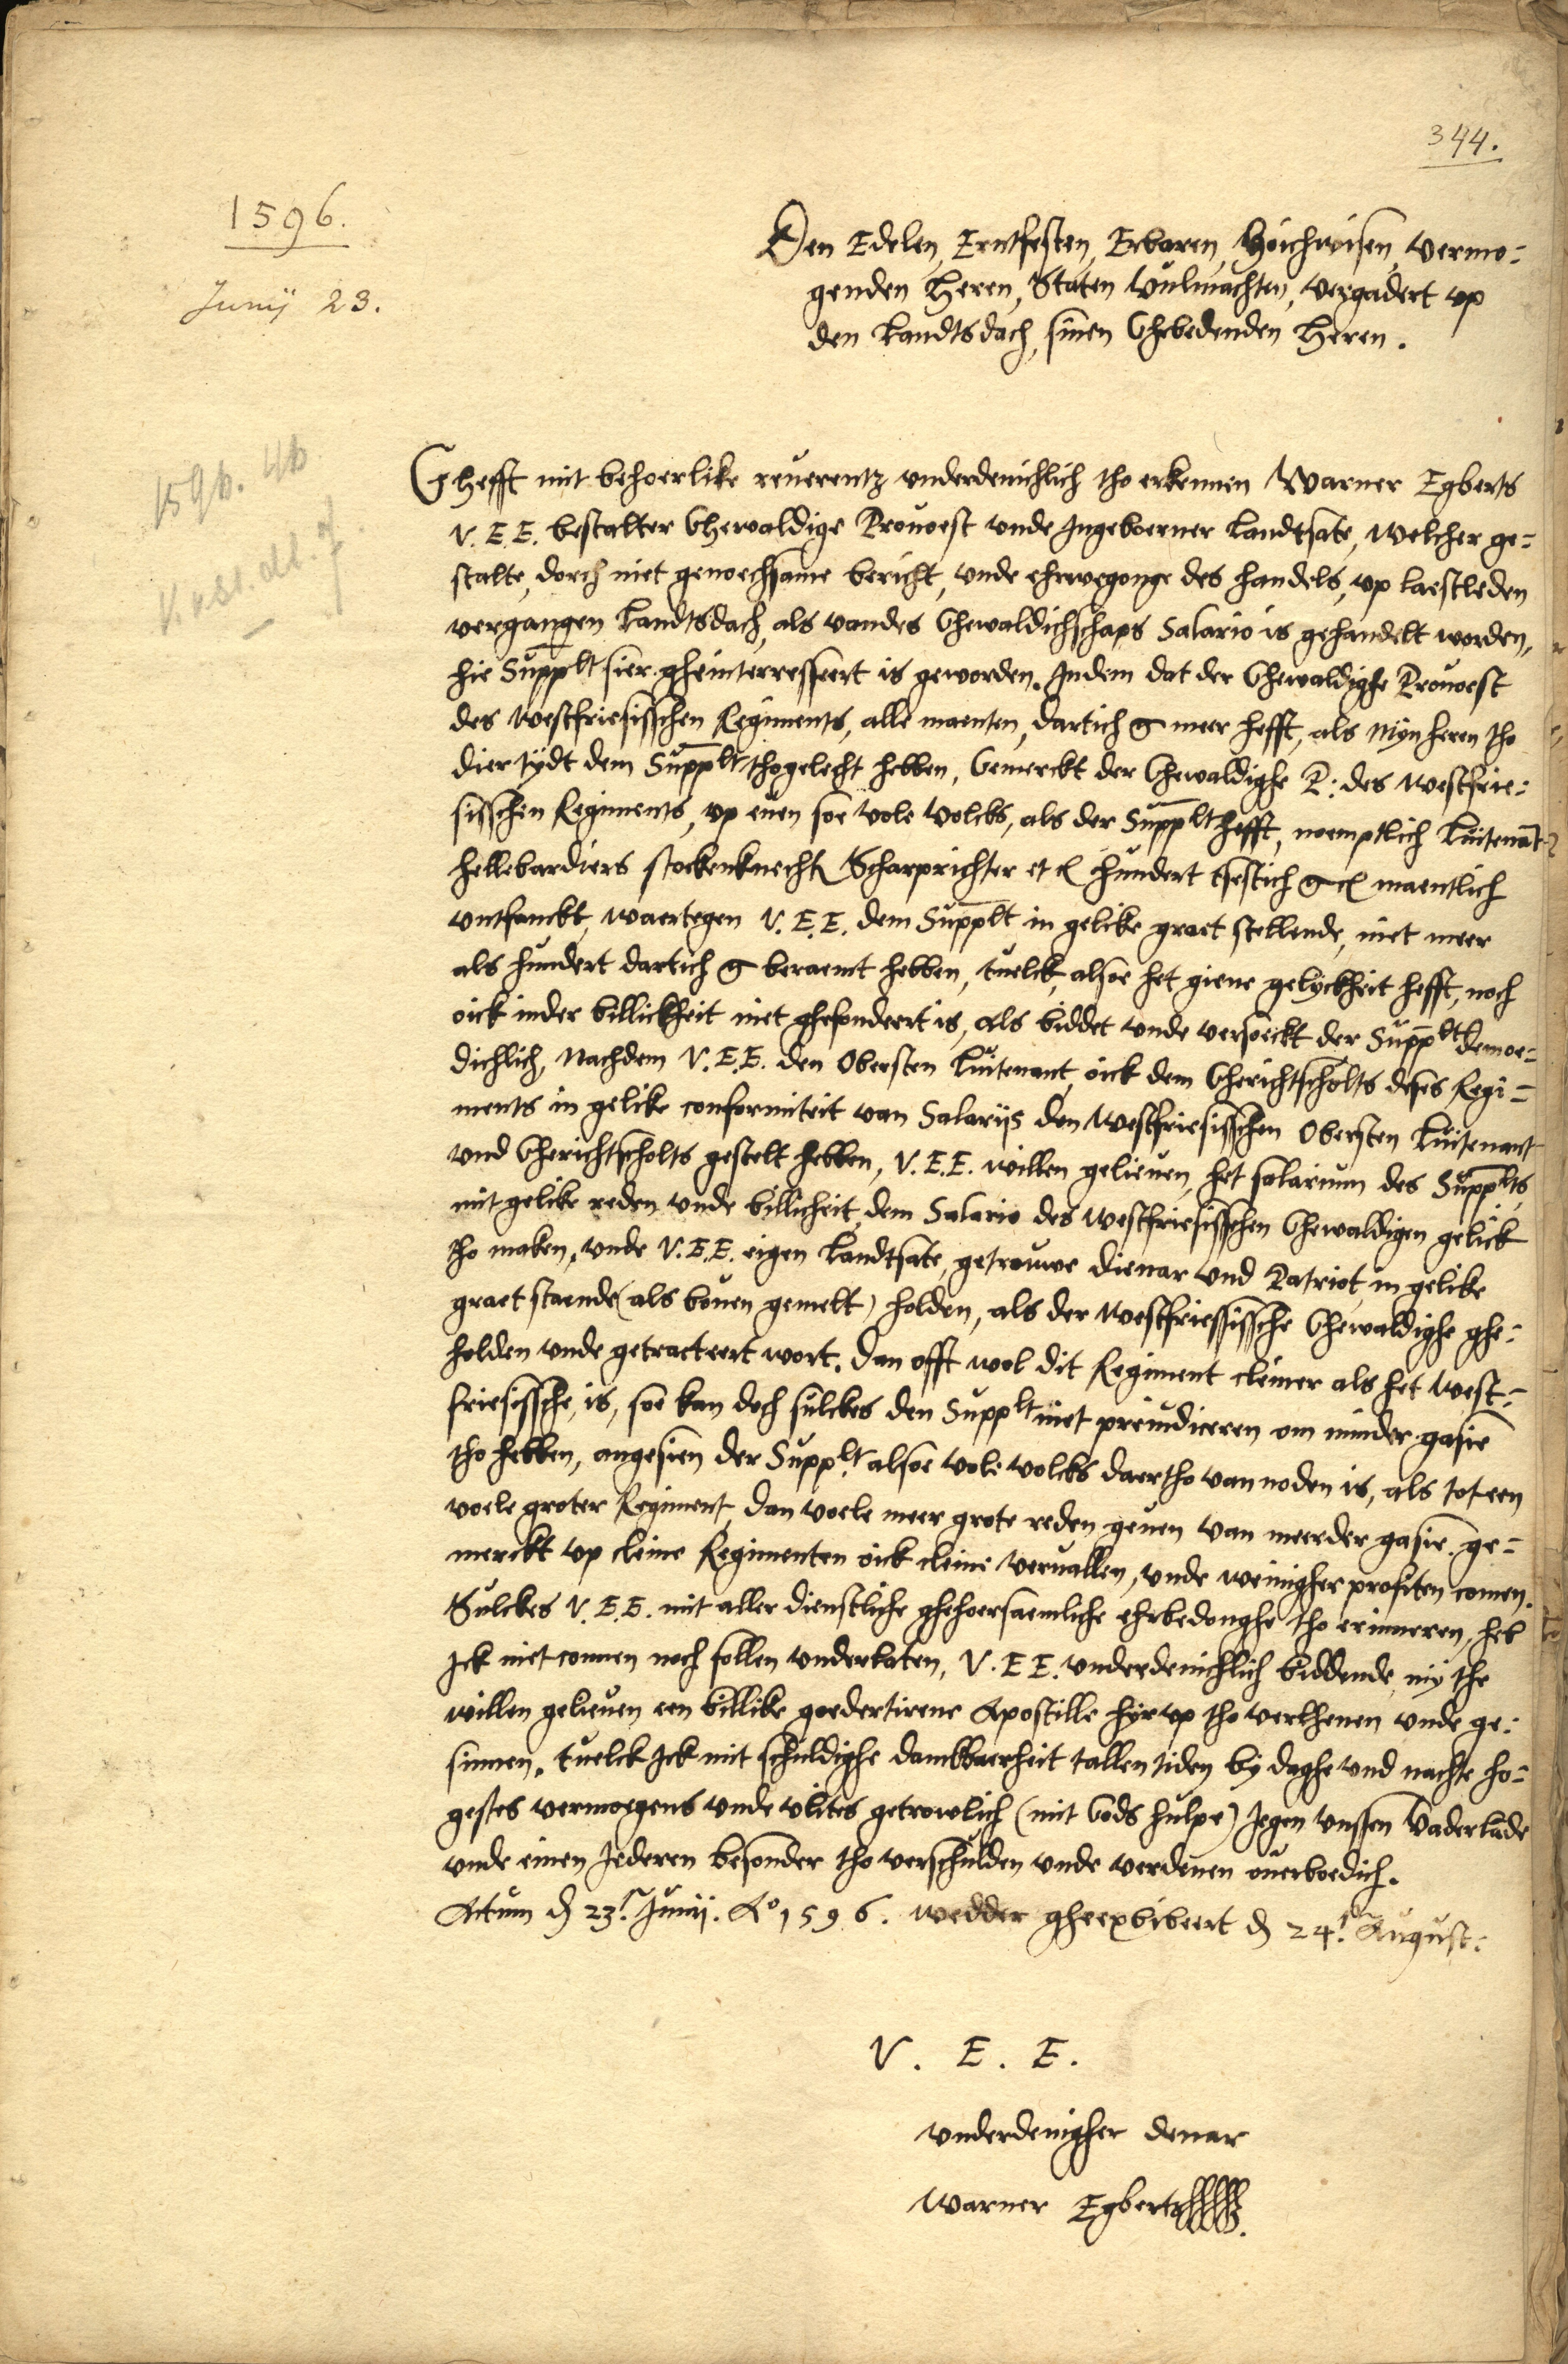 344.
1596.
Junij 23.
Den Edelen, Erntfesten, Erbaren, Hoichwisen, vermo-
genden Heren, Staten Vulmachten, vergadert vp
den Landtsdach, sinen Ghebedenden Heren.
1596. 46
Ghefft mit behoerlike reuerentz vnderdenichlich tho erkennen Warner Egberts
V. E. E. bestalter Ghewaldige Prouoest vnde Ingeboerner Landtsate, welcher ge-
stalte, dorch niet genoechsame bericht, vnde ehrwegonge des handels, vp laestleden
vergangen Landtsdach, als vandes Ghewaldichschaps Salario is gehandelt worden,
hie Supplt sier gheinterresseert is geworden. Indem dat der Ghewaldighe Prouoest
des westfriesisschen Regiments, alle maenten, dartich g meer hefft, als Mijn heren tho
dier tijdt dem Supplt thogelecht hebben, Gemerckt der Ghewaldighe P: des westfrie-
sisschen Regiments, vp euen soe vole Volcks, als der Supplt hefft, noemptlich Luitenāt
hellebardiers stockenknecht Scharprichter etc hundert tsestich g maentlich
vntfanckt, waertegen V. E. E. dem Supplt in gelike graet stellende, niet meer
als hundert dartich g beraemt hebben, twelck, alsoe het giene gelyckheit hefft, noch
oick inder billickheit niet ghefondeert is, als biddet vnde versoeckt der Supplt demoe-
dichlich, Nachdem V. E. E. den Obersten Luitenant, oick dem Gherichtscholts deses Regi-
ments in gelike conformiteit van Salarijs den Westfriesisschen Obersten Luitenant
vnd Gherichtscholts gestelt hebben, V. E. E. willen gelieuen, het salarium des Supplts
mit gelike reden vnde billicheit dem Salario des westfriesisschen Ghewaldigen gelick
tho maken, vnde V. E. E. eigen Landtsate, getrouwe dienar vnd Patriot, in gelike
graet staende (als bouen gemelt) holden, als der Westfriessissche Ghewaldighe ghe-
holden vnde getracteert wort. Dan offt wol dit Regiment cleiner als het West-
friesissche, is, soe kan doch sulckes den Supplt niet preiudiceren om minder gasie
tho hebben, angesien der Supplt alsoe vole volcks daertho van noden is, als tot een
voele groter Regiment, Dan voele meer grote reden geuen van meerder gasie. ge-
merckt vp cleine Regimenten oick cleine vervallen, vnde weinigher profiten comen.
Sulckes V. E. E. mit aller dienstliche ghehoersaemliche ehrbedonghe tho erinneren, heb
Ick niet connen noch sollen vnderlaten, V. E E. vnderdenichlich biddende, my the
willen gelieuen een billike goedertirene Apostille hyrvp tho verlhenen vnde ge-
sinnen. twelck Ick mit schuldighe danckbaerheit tallen tiden by daghe vnd nachte ho-
gestes vermoegens vnde vlites getrowlich (mit Gods hulpe) Jegen vnssen Vaderlāde
vnde einen Jederen besonder tho verschulden vnde verdenen ouerboedich.
Actum d 23t Junij. Ao 1596. wedder gheexhibeert d 24t August:
V. E. E.
vnderdenigher denar
Warner Egberts